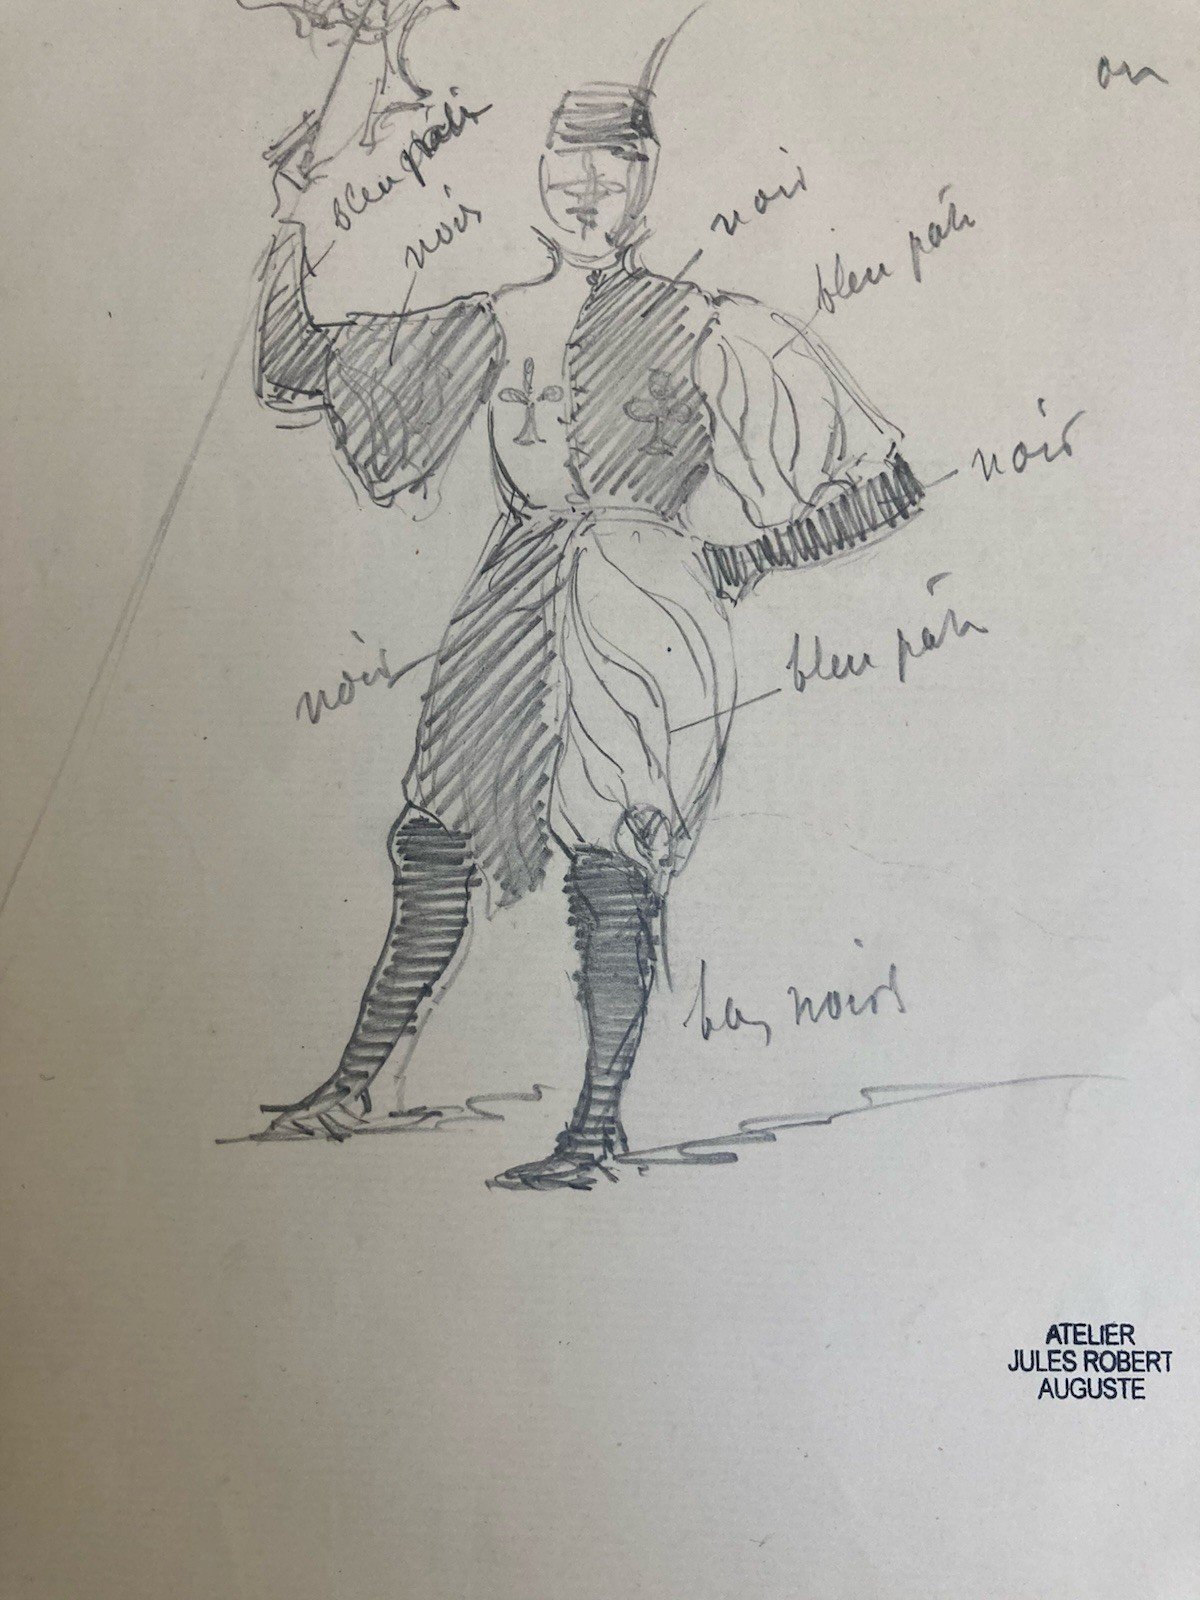 on
bleu pâle
noir
noir
bleu pâle
noir
bleu pâle
noir
bas noirs
ATELIER
JULES ROBERT
AUGUSTE